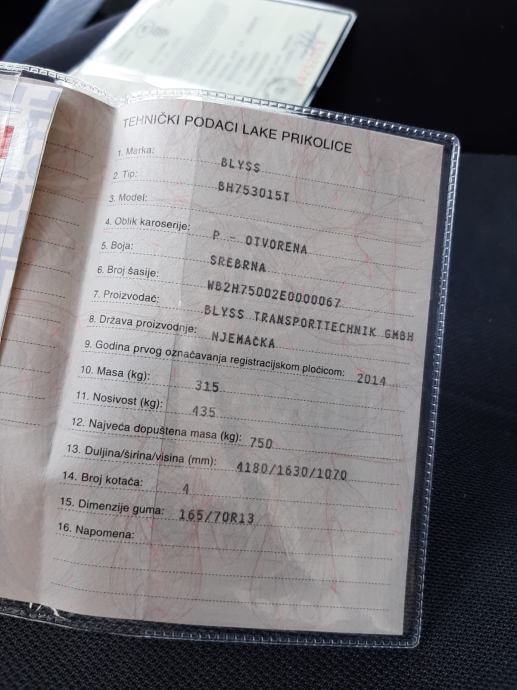 TEHNIČKI PODACI LAKE PRIKOLICE
1. Marka: BLYSS
2. Tip: BH753015T
3. Model:
4. Oblik karoserije: P - OTVORENA
5. Boja: SREBRNA
6. Broj šasije: WB2H75002E0000067
7. Proizvođač: BLYSS TRANSPORTTECHNIK GMBH
8. Država proizvodnje: NJEMAČKA
9. Godina prvog označavanja registracijskom pločicom: 2014
10. Masa (kg): 315
11. Nosivost (kg): 435
12. Najveća dopuštena masa (kg): 750
13. Duljina/širina/visina (mm): 4180/1630/1070
14. Broj kotača: 4
15. Dimenzije guma: 165/70R13
16. Napomena: